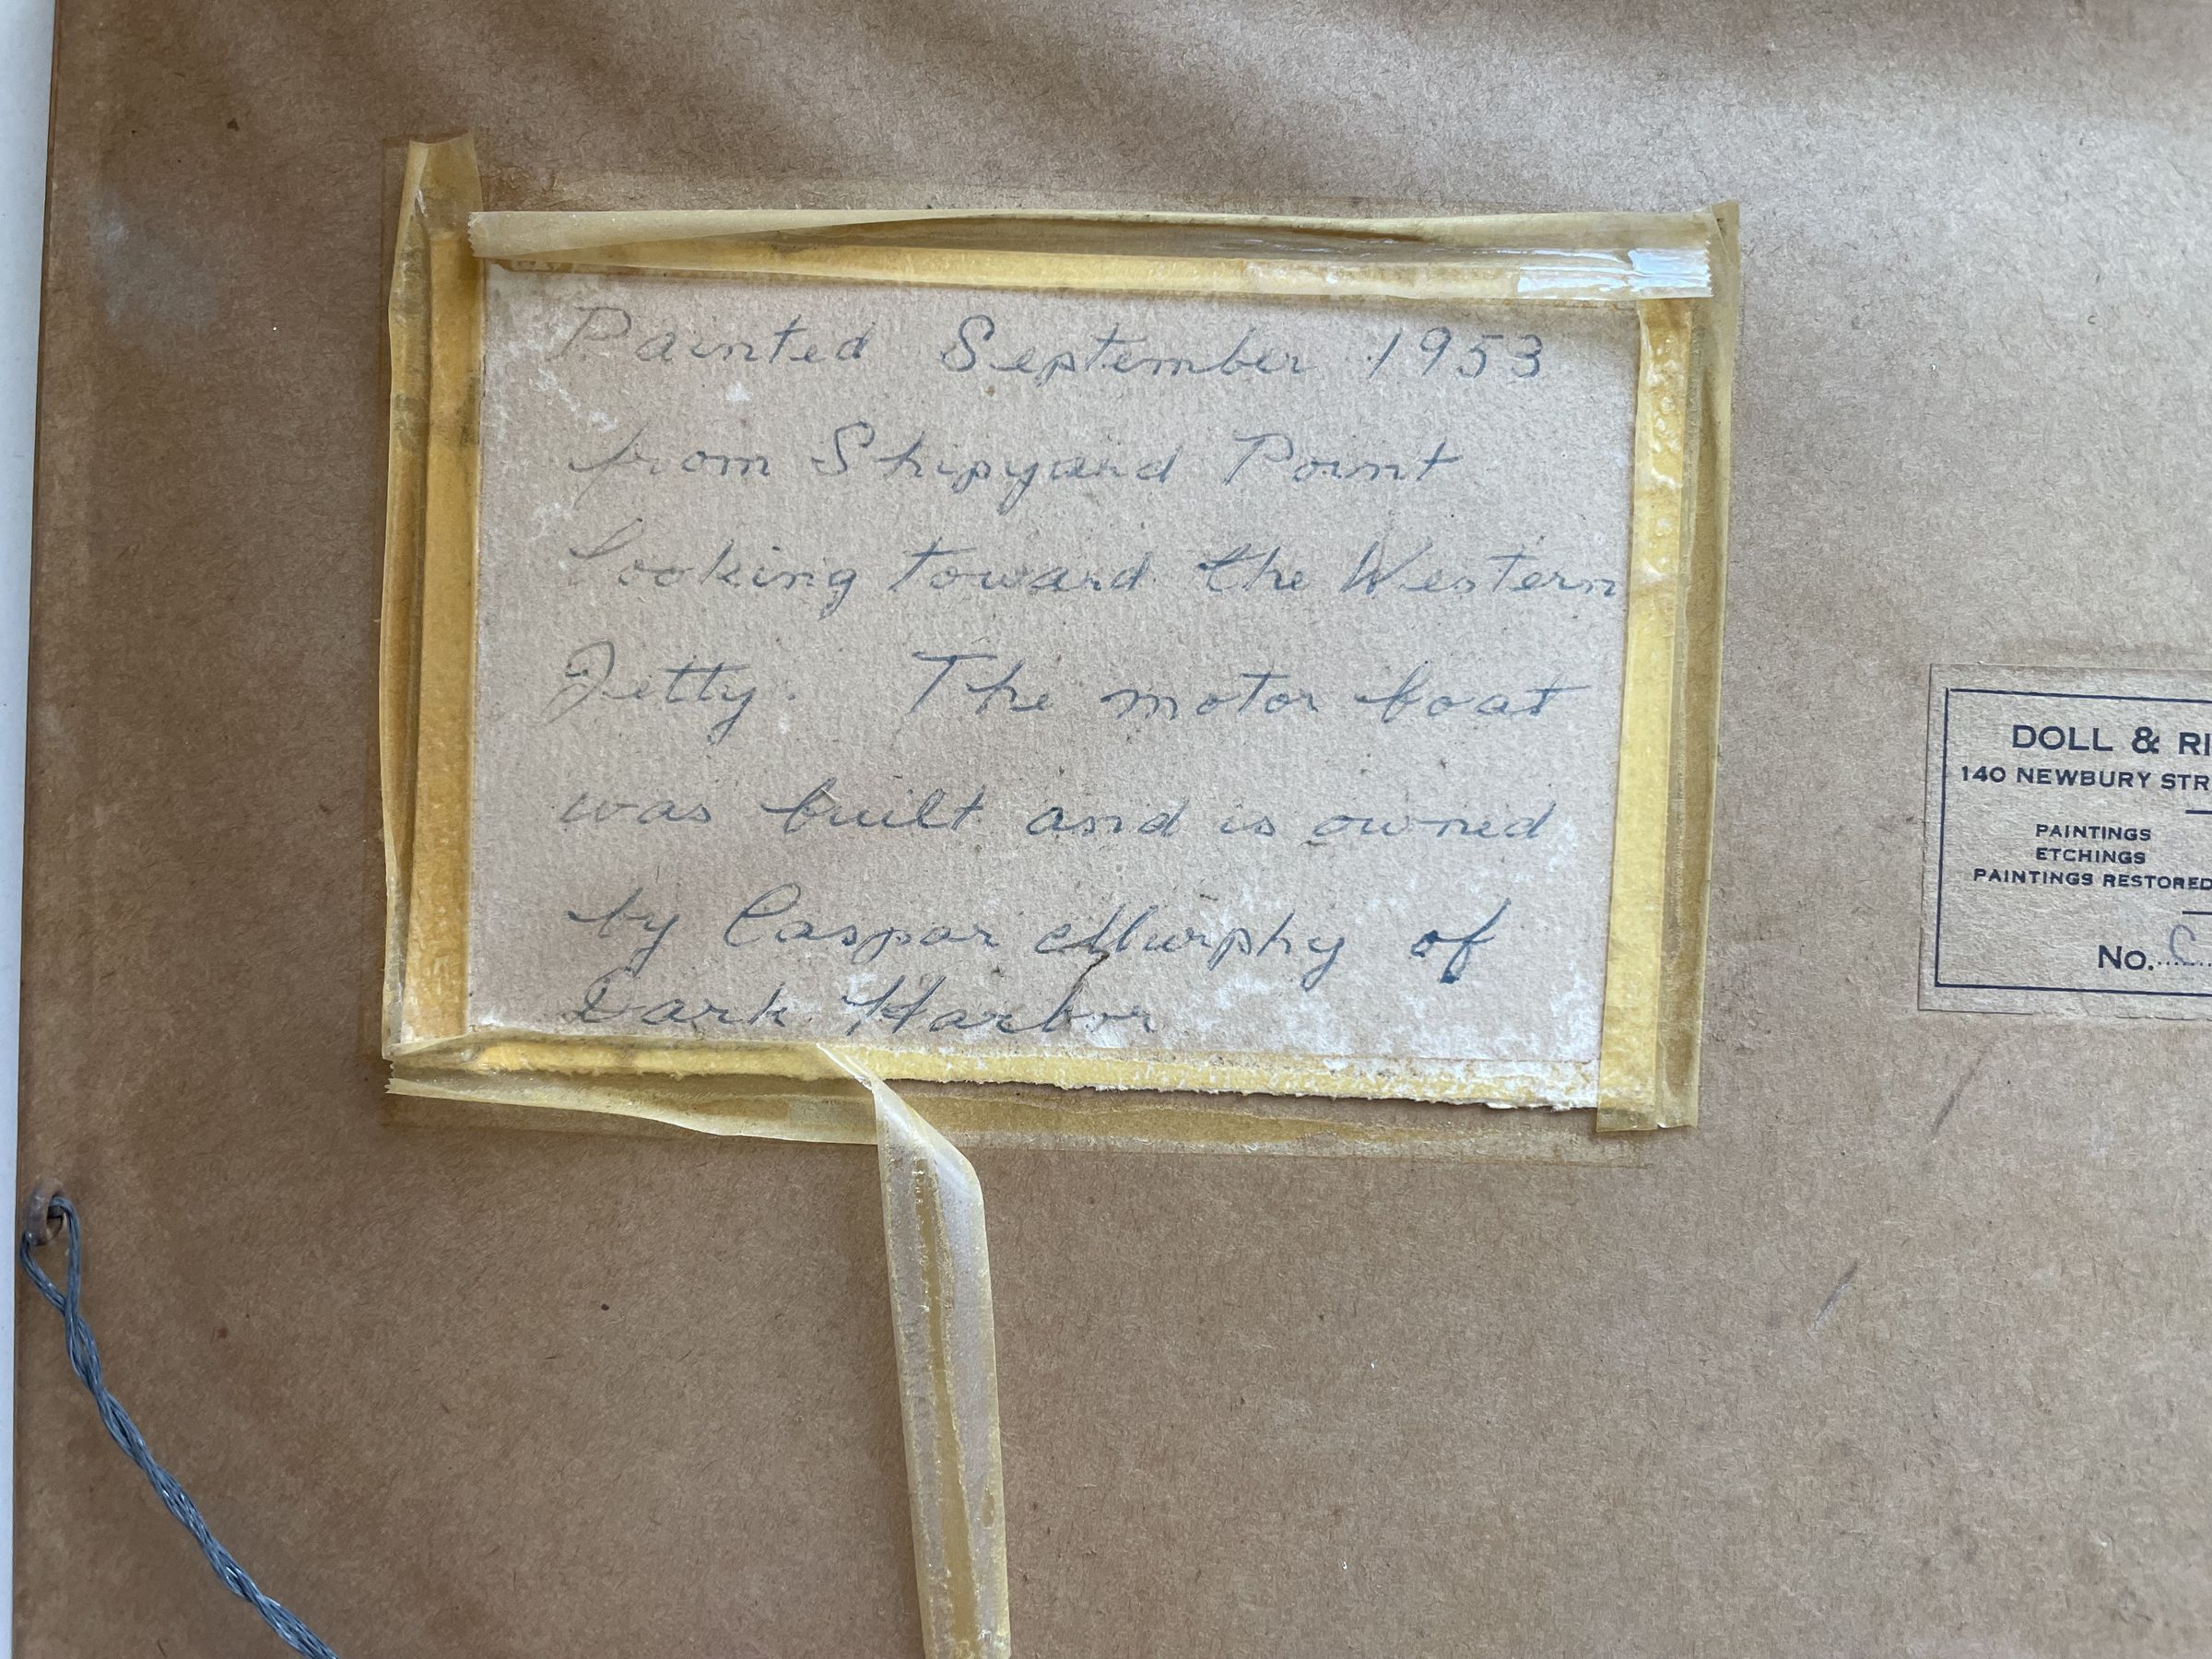 Painted September 1953
from Shipyard Point
Looking toward the Western
Jetty. The motor boat
was built and is owned
by Caspar Murphy of
Dark Harbor
DOLL & RI
140 NEWBURY STR
PAINTINGS
ETCHINGS
PAINTINGS RESTORED
No.